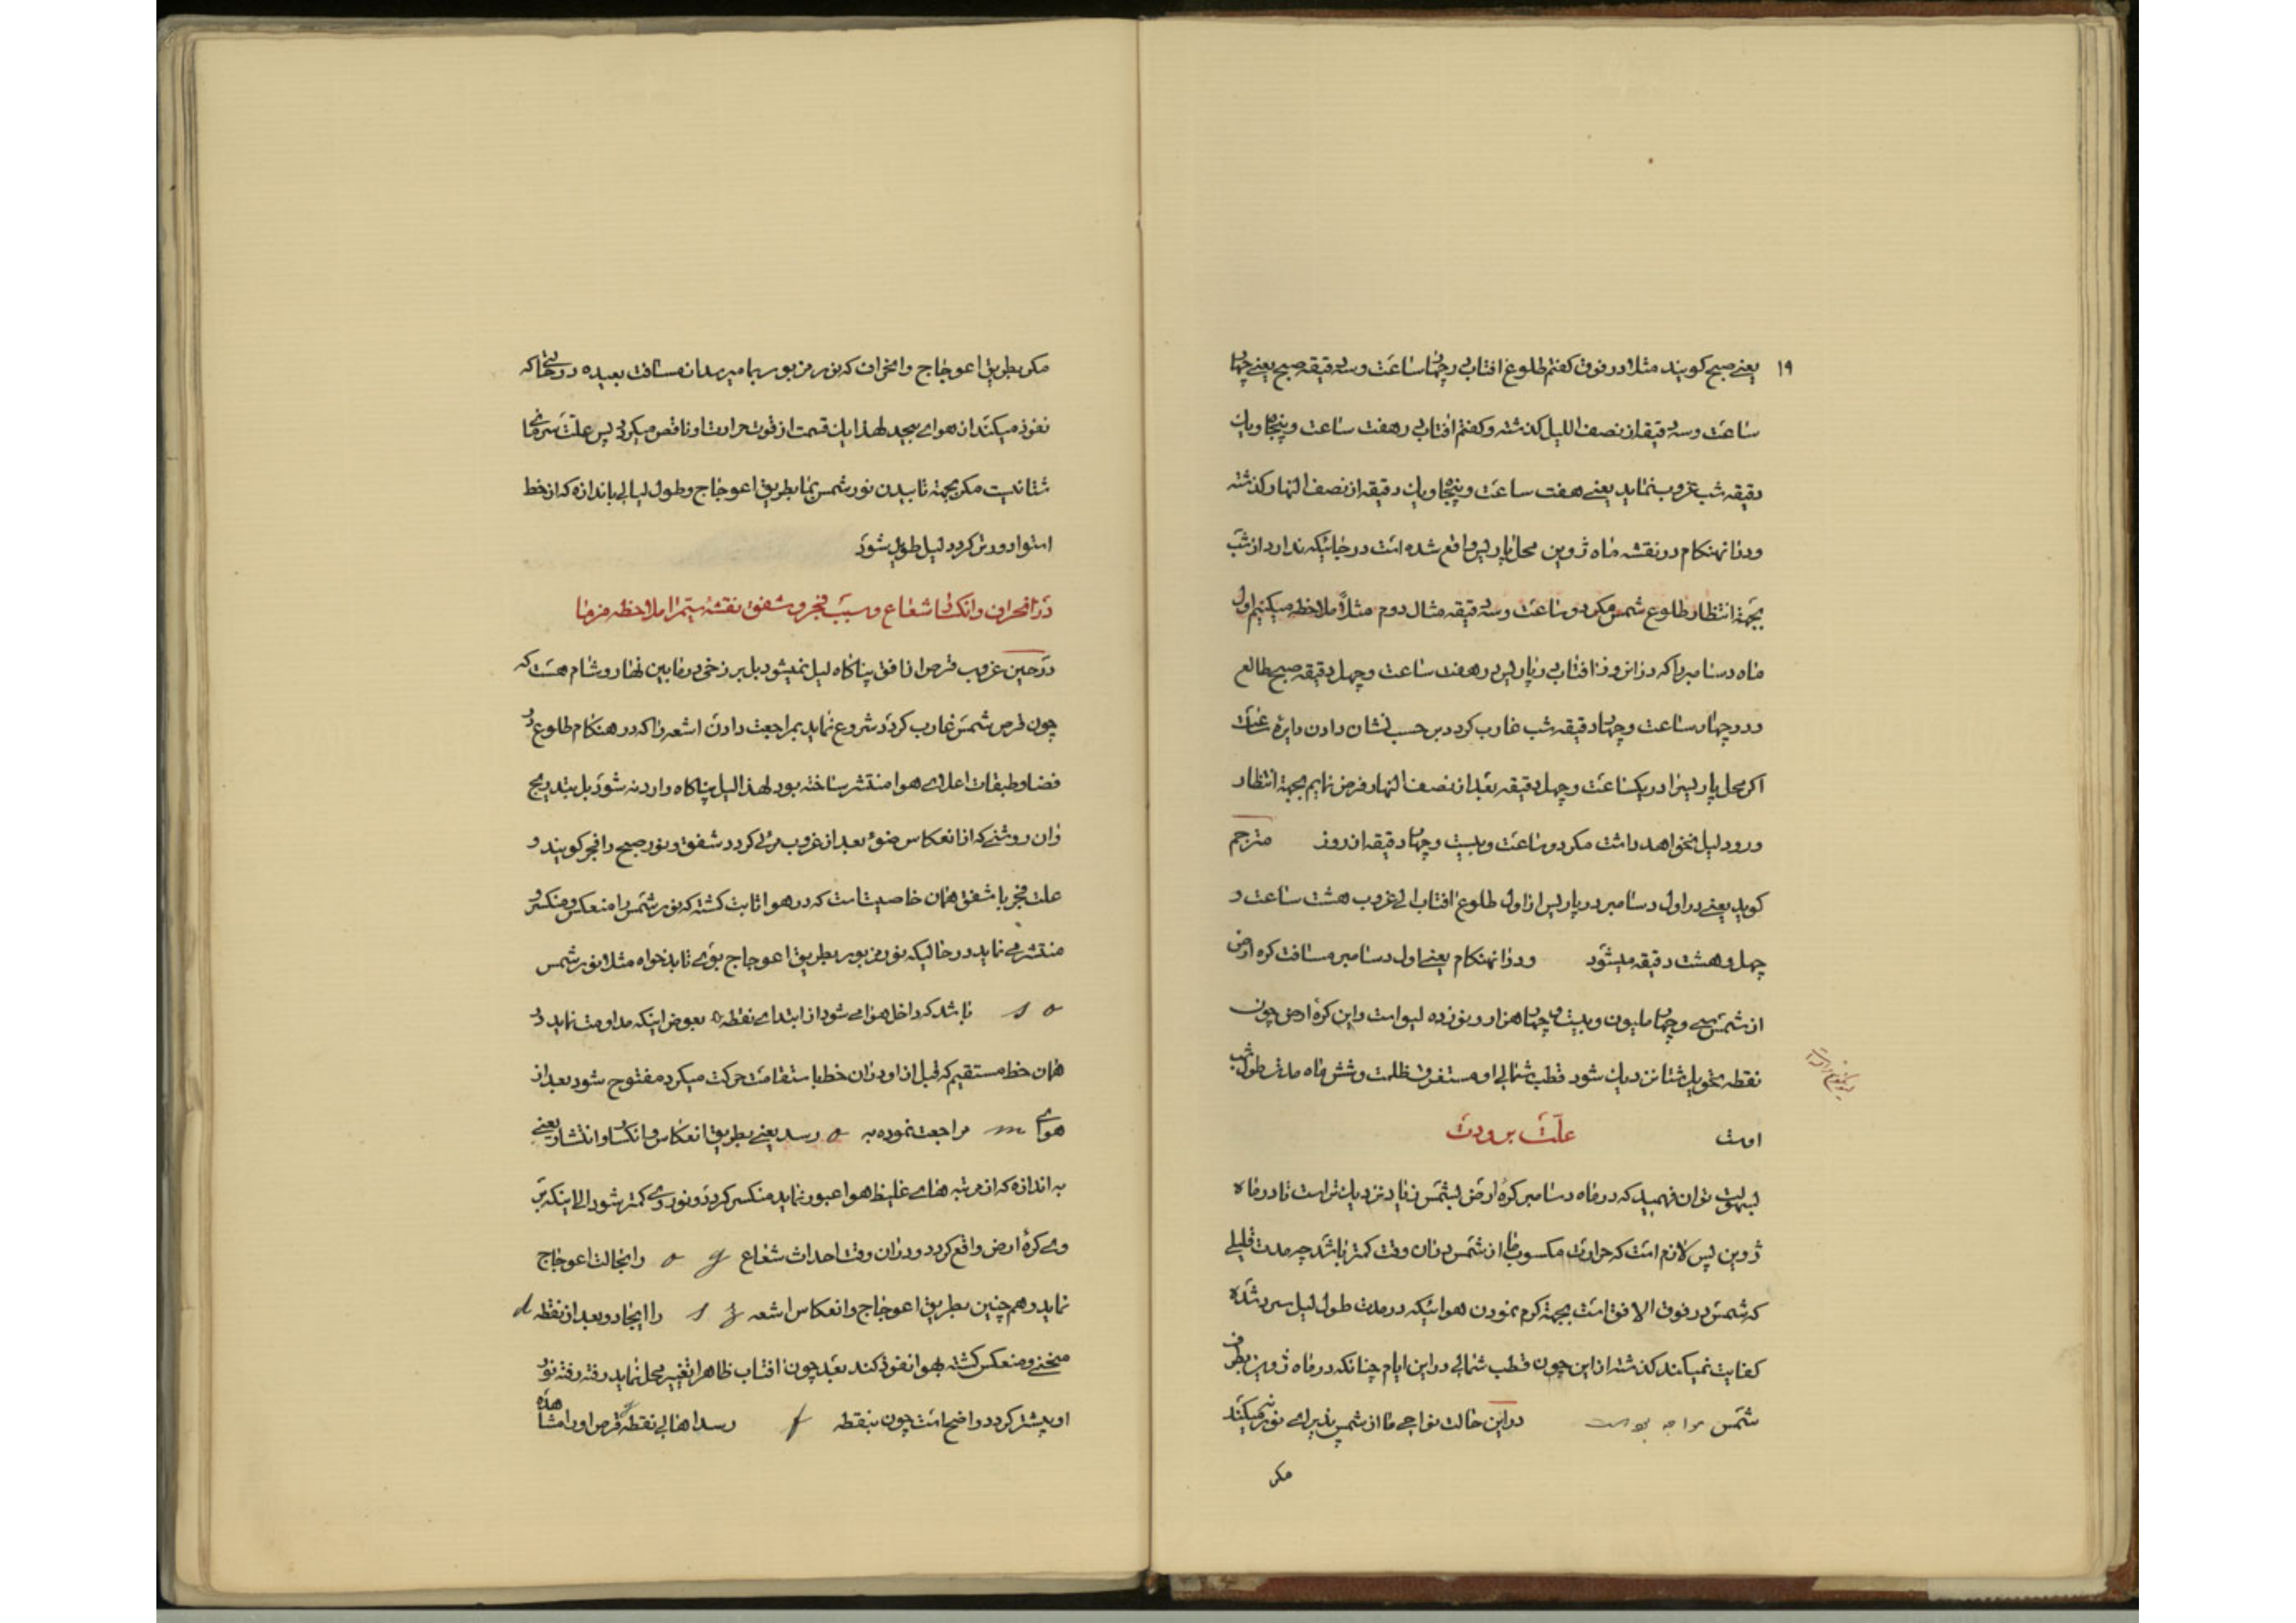 ۱۹
یعنی صبح کویند مثلا در فوق کفتم طلوع افتاب در چهار ساعت و سه دقیقه صبح یعنی چهار
ساعت و سه دقیقه از نصف اللیل کذشته و کفتم افتاب در هفت ساعت و پنجاه و یک
دقیقه شب غروب نماید یعنی هفت ساعت و پنجاه و یک دقیقه از نصف النهار کذشته
ودر انهنکام در نقشه ماه ژوین محل پاریس واقع شده است در جائیکه ندارد از شب
بجهة انتظار طلوع شمس مکر دو ساعت و سه دقیقه مثال دوم مثلاً ملاحظه میکنیم اول
ماه دسامبر را که در انروز افتاب در پاریس در هفت ساعت و چهل دقیقه صبح طالع
و در چهار ساعت و چهار دقیقه شب غارب کردد بر حسب نشان دادن دایره
اکر محل پاریس را در یکساعت و چهل دقیقه بعد از نصف النهار فرض نمایم بجهة انتظار
ورود لیل نخواهد داشت مکر دو ساعت و بیست و چهار دقیقه از روز مترجم
کوید یعنی در اول دسامبر در پاریس از اول طلوع افتاب الی غروب هشت ساعت و
چهل و هشت دقیقه میشود ودر انهنکام یعنی اول دسامبر مسافت کره ارض
از شمس سی و چهار ملیون و بیست و چهار هزار و نوزده لیو است و این کره ارض چون
نقطه تحویل شتا نزدیک شود قطب شمالی او مستغرق ظلمت و شش ماه مدت طول شب
است علّت برودت
بسهولت توان فهمید که در ماه دسامبر کرهٔ ارض بشمس زیاد نزدیک تر است تا در ماه
ژوین پس لازم است که حرارت مکسوب ما از شمس در ان وقت کمتر باشد چه مدت قلیلی
که شمس در فوق الافق است بجهة کرم نمودن هوائیکه در مدت طول لیل سرد شده
کفایت نمیکند کذشته از این چون قطب شمالی در این ایام چنانکه در ماه ژوین بطرف
شمس مواجه بوده است در این حالت نواحی ما از شمس پذیرای نور نمیکند
مکر
مکر بطریق اعوجاج وانحراف که نور مزبور بما میرسد از مسافت بعیده در حالتیکه
نفوذ میکند از هوای بیحد لهذا یک قسمت از قوت حرارت او ناقص میکردد پس علت سرمای
شتا نیست مکر بجهة تابیدن نور شمس بما بطریق اعوجاج و طول لیالی باندازه که از خط
استوا دورتر کردد لیل طویل شود
در انحراف وانکسار شعاع و سبب فجر و شفق نقشهٔ سیّم را ملاحظه فرما
در حین غروب قرص از افق بناکاه لیل نمیشود بل برزخی در مابین نهار و شام هست که
چون قرص شمس غارب کردد شروع نماید بمراجعت دادن اشعه را که در هنکام طلوع در
فضا و طبقات اعلای هوا منتشر ساخته بود لهذا لیل بناکاه وارد نه شود بل بتدریج
وان روشنی که از انعکاس ضوء بعد از غروب مرئی کردد شفق و نور صبح را فجر کویند و
علت فجر یا شفق همان خاصیتیست که در هوا ثابت کشته که نور شمس را منعکس و منکسر و
منتشر می نماید در حالیکه نور مزبور بطریق اعوجاج بوی تابد خواه مثلا نور شمس
s o باشد که داخل هوا می شود از ابتدای نقطه o بعوض اینکه مداومت نماید در
همان خط مستقیم که قبل از او در ان خط باستقامت حرکت میکرد مفتوح شود بعد از
هوای m مراجعت نموده به o رسد یعنی بطریق انعکاس و انکسار و انتشار یعنی
به اندازه که از مرتبه های غلیظ هوا عبور نماید منکسر کردد و نور وی کمتر شود الی اینکه بر
وی کرهٔ ارض واقع کردد و در ان وقت احداث شعاع o g را بحالت اعوجاج
نماید و هم چنین بطریق اعوجاج و انعکاس اشعه s z را ایجاد و بعد از نقطه d
منحنی و منعکس کشته بهوا نفوذ کند بعد چون افتاب ظاهرا تغییر محل نماید رفته رفته نور
او بیشتر کردد واضح است چون بنقطه f رسد اهالی نقطه g قرص او را مشاهده